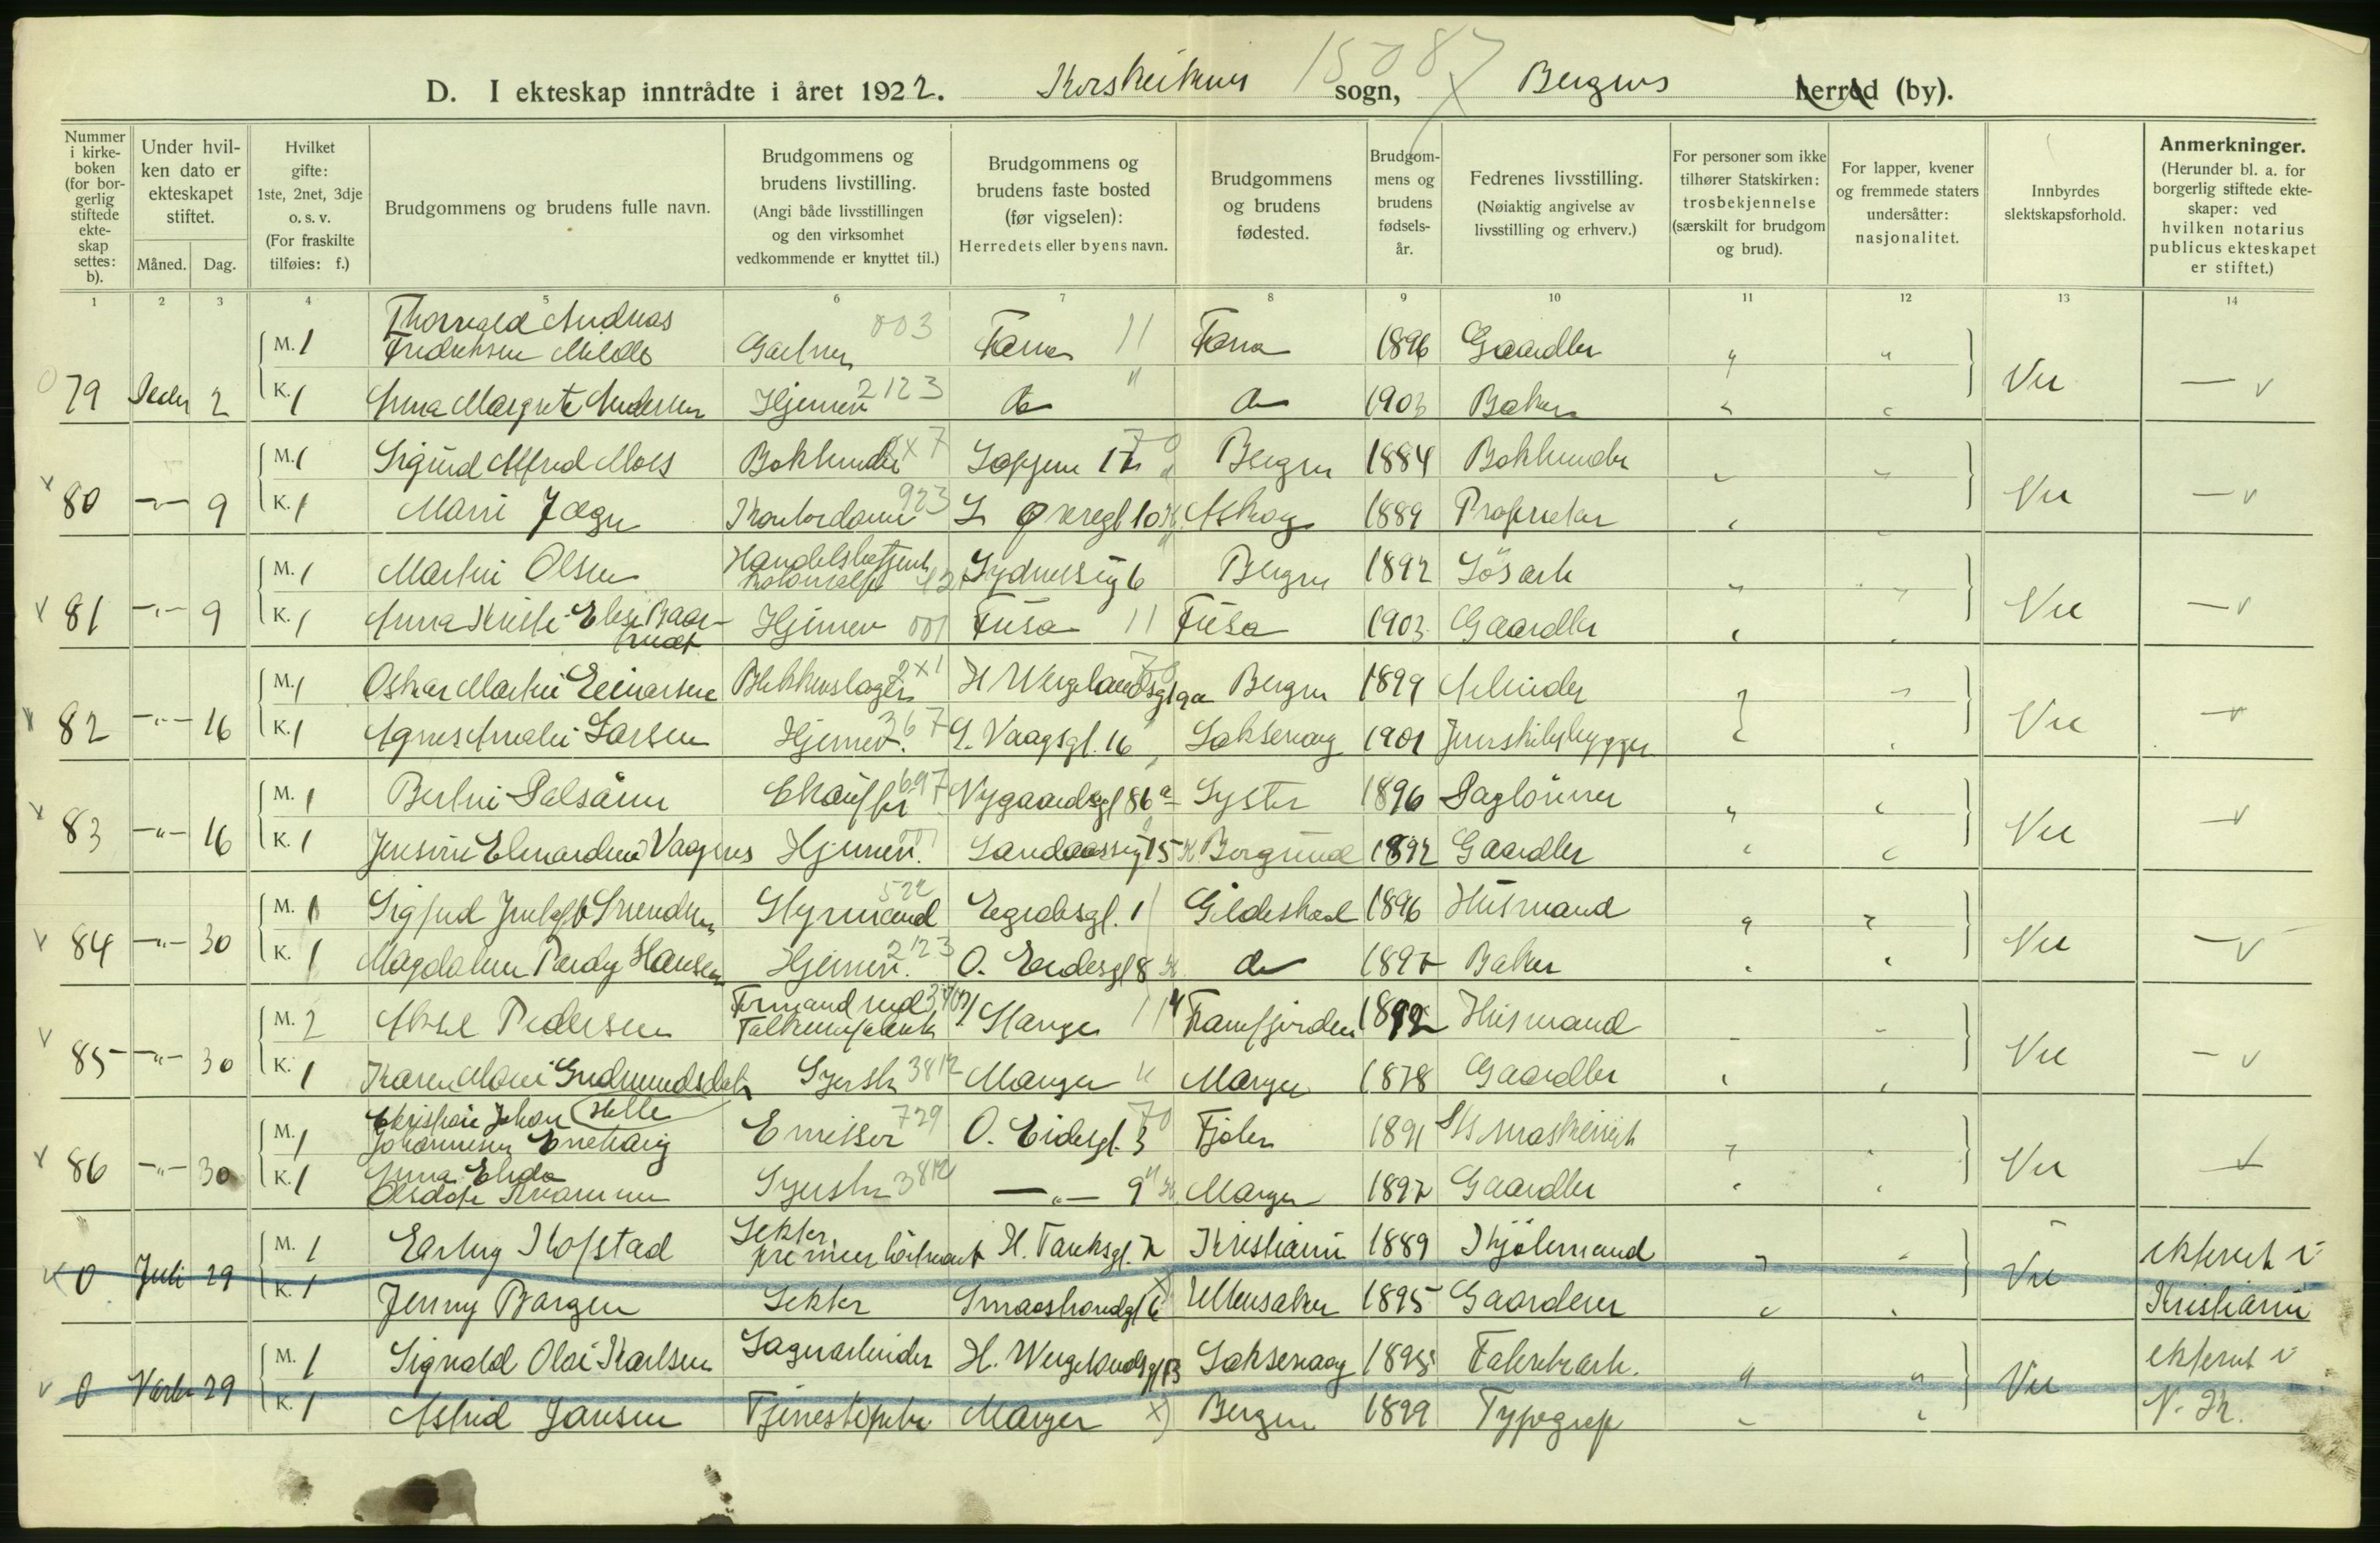 D. I ekteskap inntrådte i året 1922. Korskirkens sogn, Bergens herred (by).
15087
Nummer i kirkeboken (for borgerlig stiftede ekteskap settes: b).
Under hvilken dato er ekteskapet stiftet.
Måned. Dag.
Hvilket gifte: 1ste, 2net, 3dje o. s. v. (For fraskilte tilføies: f.)
Brudgommens og brudens fulle navn.
Brudgommens og brudens livstilling. (Angi både livsstillingen og den virksomhet vedkommende er knyttet til.)
Brudgommens og brudens faste bosted (før vigselen): Herredets eller byens navn.
Brudgommens og brudens fødested.
Brudgommens og brudens fødselsår.
Fedrenes livsstilling. (Nøiaktig angivelse av livsstilling og erhverv.)
For personer som ikke tilhører Statskirken: trosbekjennelse (særskilt for brudgom og brud).
For lapper, kvener og fremmede staters undersåtter: nasjonalitet.
Innbyrdes slektskapsforhold.
Anmerkninger. (Herunder bl. a. for borgerlig stiftede ekteskaper: ved hvilken notarius publicus ekteskapet er stiftet.)
1 2 3 4 5 6 7 8 9 10 11 12 13 14
Thorvald Andreas
M. 1 Fredriksen Milde Gartner 003 Fana 11 Fana 1896 Gaardbr " "
79 Decbr 2 Nei — v
K. 1 Anna Margrete Andersen Hjemmev 2123 do " do 1903 Baker " "
M. 1 Sigurd Alfred Moes Bokbinder 8x7 Bergen 1884 Bokbinder
80 —"— 9 Nei — v
K. 1 Marie Jæger Kontordame 923 Askøy 1889 Proprietær
M. 1 Martin Olsen Handelsbetjent Sydnessmg 6 Bergen 1892 Løsarb
81 —"— 9 Nei — v
K. 1 Anna Kristi Elise Baar- Hjemmev 001 Fusa 11 Fusa 1903 Gaardbr
M. 1 Oskar Martin Einarsen Blikkenslager 2x1 H Wergelandsgt 9a Bergen 1899 Arbeider
82 —"— 16 Nei — v
K. 1 Agnes Amalie Larsen Hjemmev. 367 L. Vaagsgt. 16 Laksevaag 1901 Jernskibsbygger
M. 1 Bertin Dalsåren Chauffør 697 Nygaardsgt 86a Lyster 1896 Daglönner
83 —"— 16 Nei — v
K. 1 Jensine Elenardine Vaagnes Hjemmev. 001 Landaassvg 15 Borgund 1892 Gaardbr
M. 1 Styrmand 522 Gildeskaal 1896 Husmand
84 —"— 30 Nei — v
K. 1 Magdalene Pardy Hansen Hjemmev. 2123 O. Eidesgt 8 do 1897 Baker
M. 2 Aksel Pedersen Formand ved Manger 11 Framfjorden 1892 Husmand
85 —"— 30 Nei — v
K. 1 Karen Marie Gudmundsdatr Syerske 3812 Manger " Manger 1878 Gaardbr
Kristian Johan Helle
M. 1 Johannesen Emissær 729 O. Eidesgt. 3 Fjaler 1891
86 —"— 30 Nei — v
Anna Elida
K. 1 Olsdatter Kvamme Syerske 3812 —"— 9 Manger 1897 Gaardbr
M. 1 Erling Hofstad Sekter. premierløitnant H. Tanksgt. 7 Kristiania 1889 Kjølemand ekteviet i
0 Juli 29 Nei
K. 1 Jenny Borgen Sekter Smaastrandgt 6 Ullensaker 1895 Gaardeier Kristiania
M. 1 Sigvald Olai Karlsen Lagerarbeider H. Wergelandsgt 13 Laksevaag 1898 Fabrikarb. " " ekteviet i
0 29 Nei
K. 1 Astrid Jansen Tjenestepike Manger x) Bergen 1899 Typograf N. K.